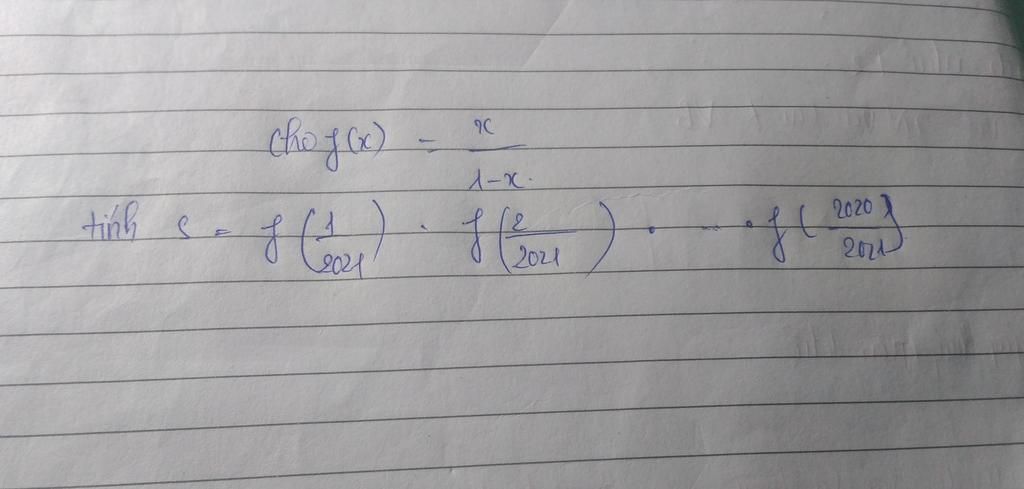 Cho f(x) = x / 1-x.
tính S = f(1/2021) . f(2/2021) . ... . f(2020/2021)